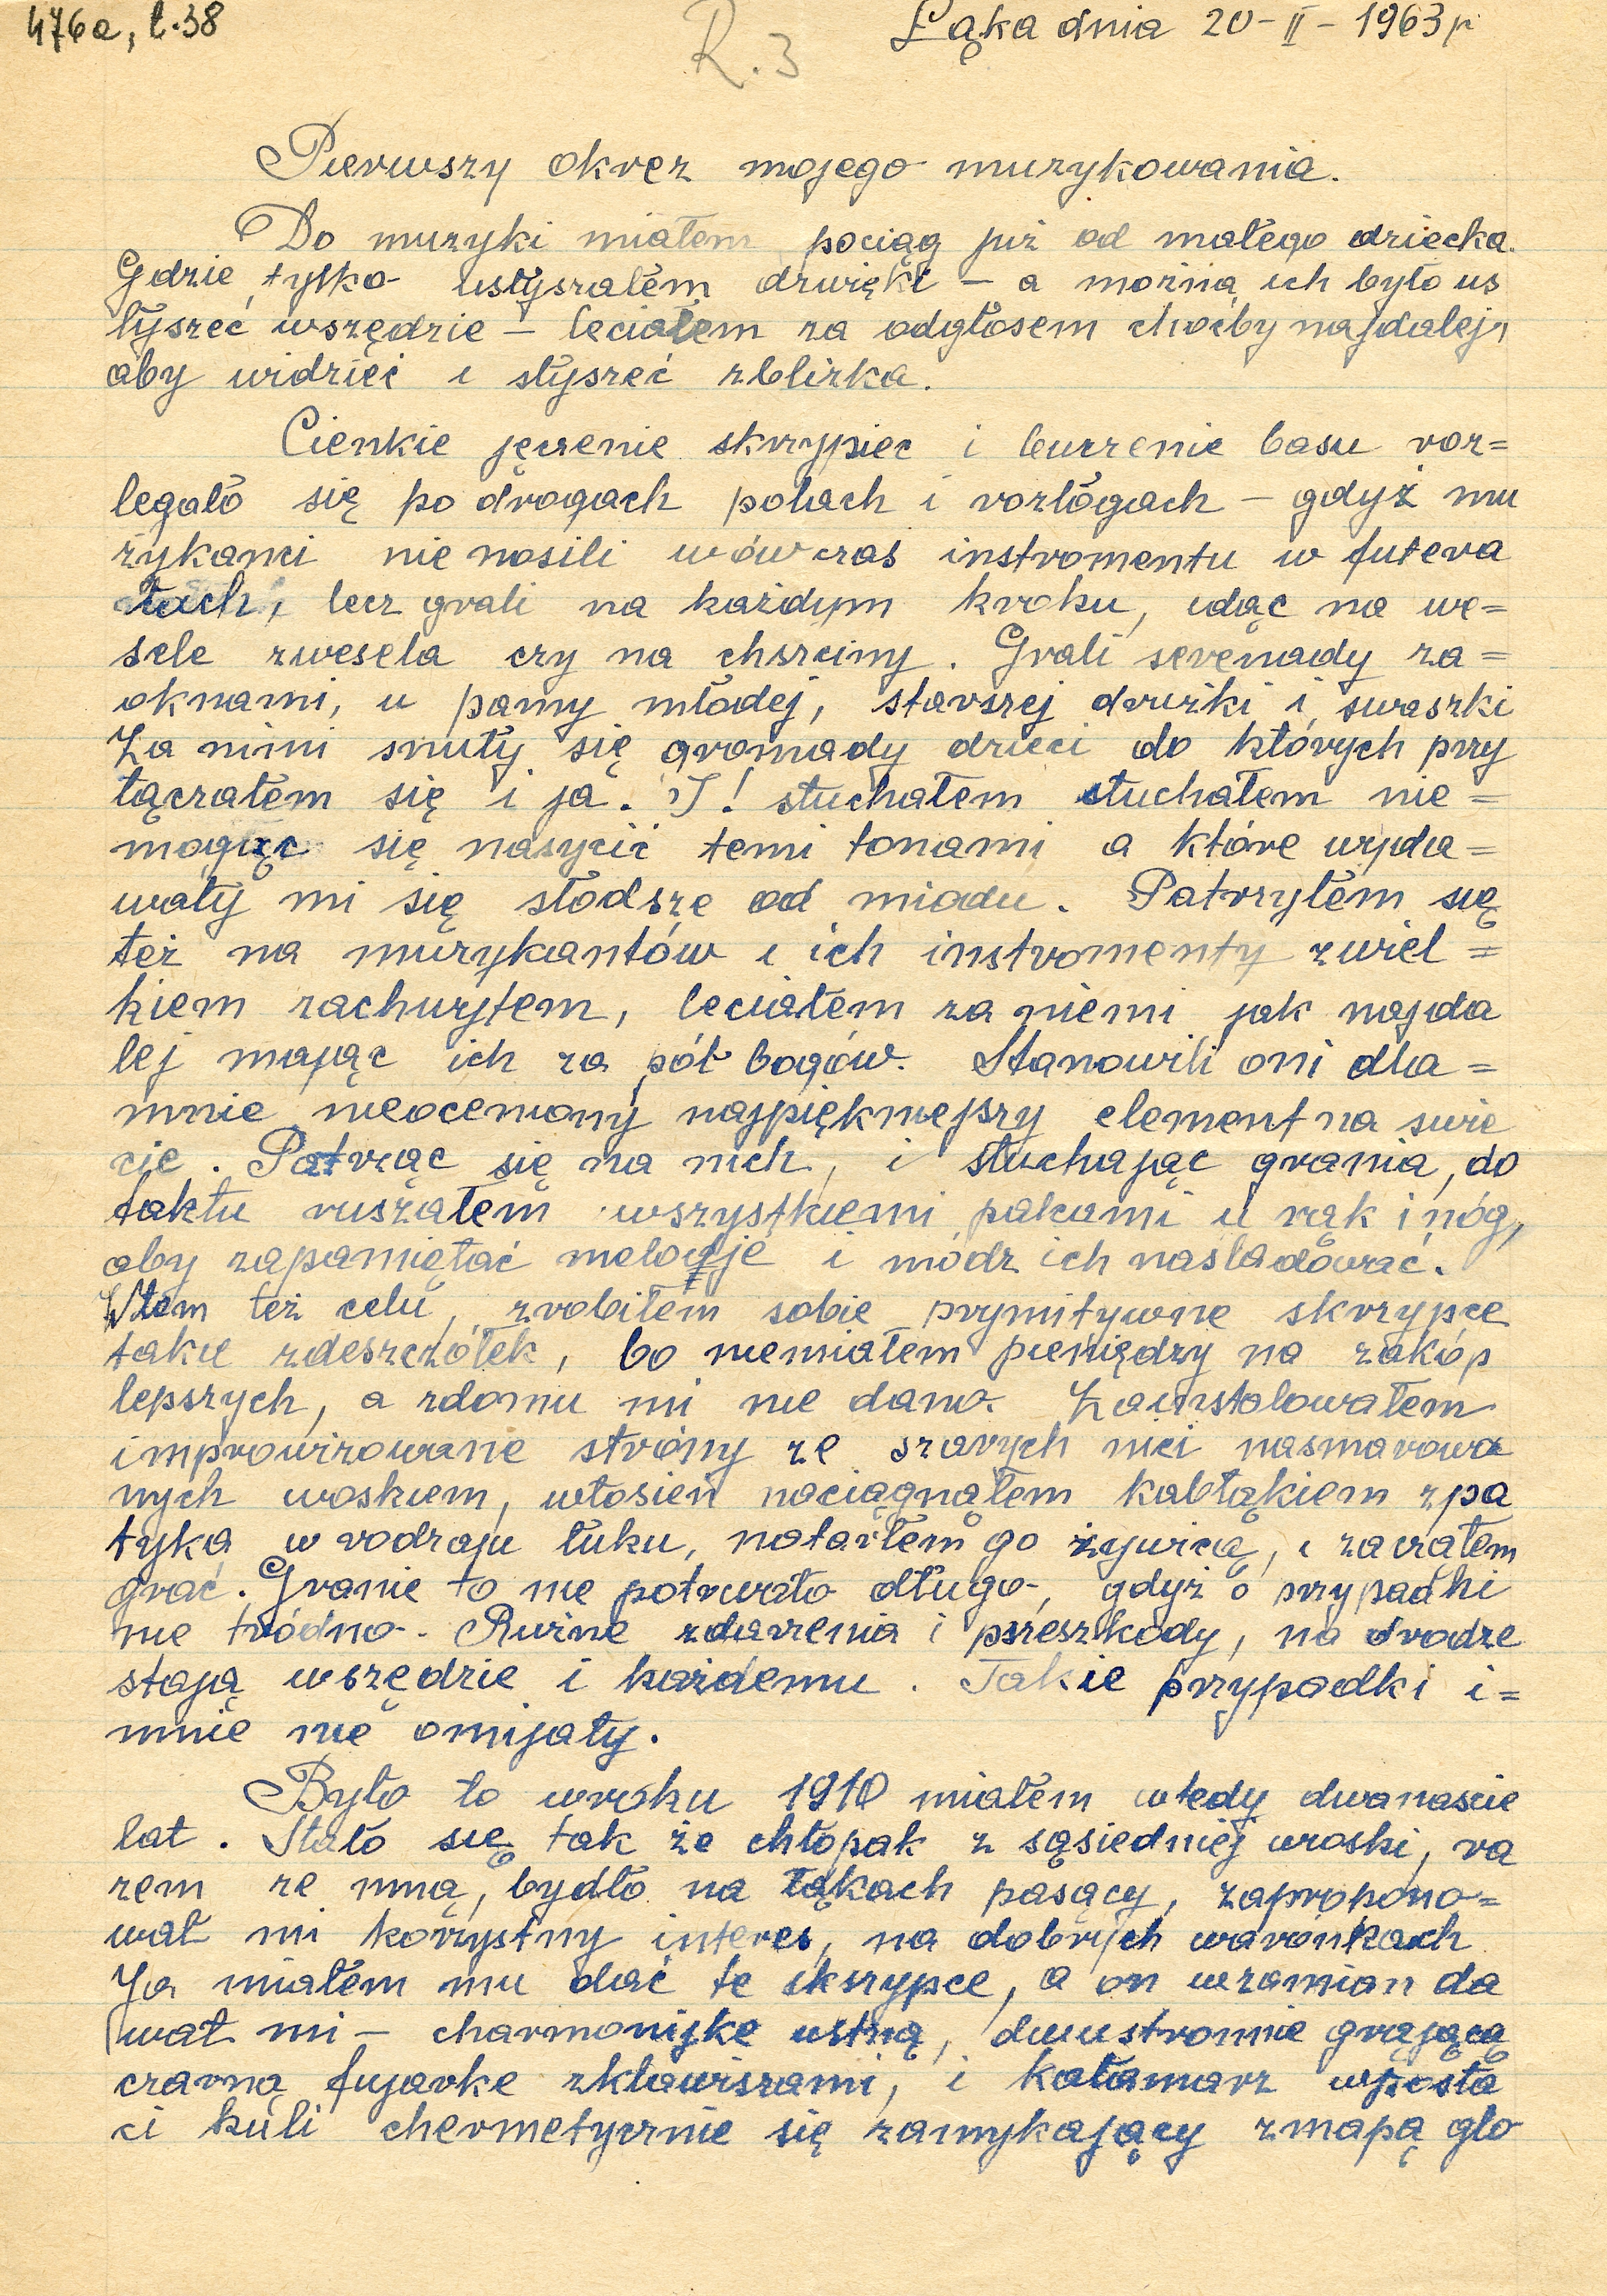 476a, t.38
R.3
Łąka dnia 20-II-1963r
Pierwszy okrez mojego muzykowania.
Do muzyki miałem pociąg już od małego dziecka.
Gdzie tylko usłyszałem dzwięki – a można ich było us
łyszeć wszędzie – leciałem za odgłosem choćby najdalej,
aby widzieć i słyszeć zblizka.
Cienkie jęczenie skrzypiec i buczenie basu roz=
legało się po drogach polach i rozłogach – gdyż mu
zykanci nie nosili wówczas instromentu w futera
łach, lecz grali na każdym kroku, idąc na we=
sele zwesela czy na chszciny. Grali serenady za=
oknami, u panny młodej, starszej drużki i swaszki
Za nimi snuły się gromady dzieci do których przy
łączałem się i ja. I! słuchałem słuchałem nie=
mogąc się nasycić temi tonami a które wyda=
wały mi się słodsze od miodu. Patrzyłem się
też na muzykantów i ich instromenty zwiel=
kiem zachwytem, leciałem za niemi jak najda
lej mając ich za pół bogów. Stanowili oni dla=
mnie nieoceniony najpiękniejszy element na swie
cie. Patrząc się na nich, i słuchając grania, do
taktu ruszałem wszystkiemi palcami u rąk i nóg,
aby zapamiętać melodje i módz ich nasladować.
Wtem też celu, zrobiłem sobie prymitywne skrzypce
takie zdeszczółek, bo niemiałem pieniędzy na zakóp
lepszych, a zdomu mi nie dano. Zainstalowałem
improwizowane stróny ze szarych nici nasmarowa
nych woskiem, włosień naciągnąłem kabłąkiem zpa
tyka w rodzaju łuku, natarłem go żywicą, i zacząłem
grać. Granie to nie potrwało długo, gdyż o przypadki
nie tródno. Rużne zdarzenia i przeszkody, na drodze
stają wszędzie i każdemu. Takie przypadki i=
mnie nie omijały.
Było to wroku 1910 miałem wtedy dwanascie
lat. Stało się tak że chłopak z sąsiedniej wioski, ra
zem ze mną, bydło na łąkach pasący, zapropono=
wał mi korzystny interes, na dobrych warónkach
Ja miałem mu dać te skrzypce, a on wzamian da
wał mi – charmonijke ustną, dwustronnie grającą
czarną fujarke zklawiszami, i kałamarz wposta
ci kuli chermetycznie się zamykający zmapą glo